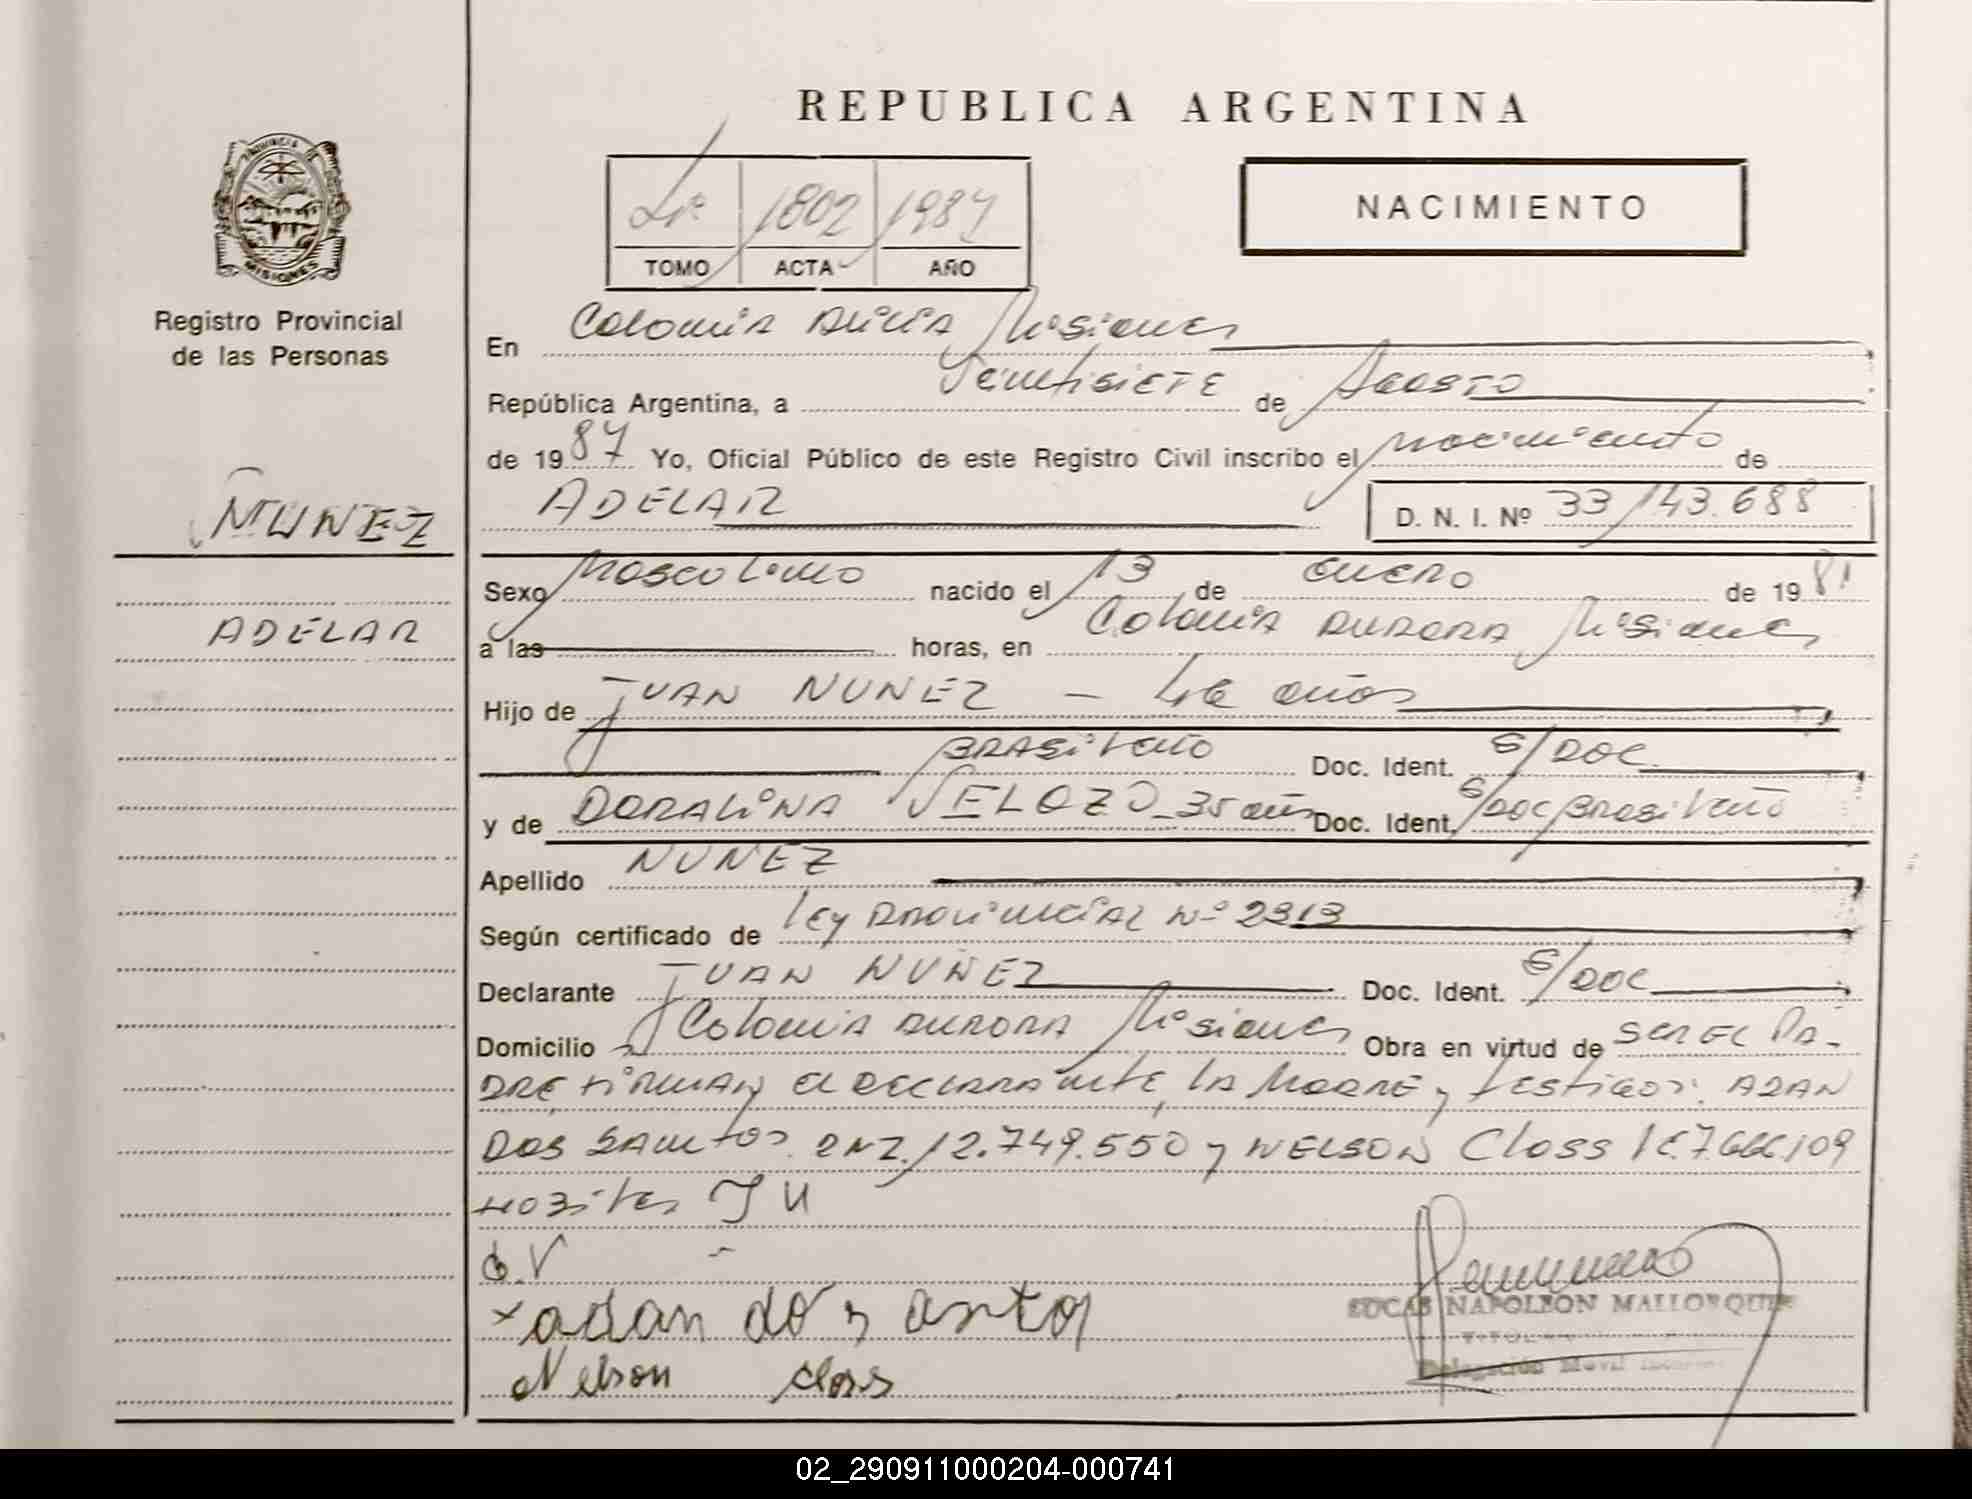 REPUBLICA ARGENTINA
PROVINCIA DE
MISIONES
Registro Provincial
de las Personas
1802 1987
TOMO ACTA AÑO
NACIMIENTO
En Colonia Alicia Misiones
República Argentina, a Veintisiete de Agosto
de 1987 Yo, Oficial Público de este Registro Civil inscribo el nacimiento de
ADELAR D. N. I. Nº 33.143.688
NUNEZ
ADELAR
Sexo Masculino nacido el 13 de enero de 1981
a las horas, en Colonia Aurora Misiones
Hijo de JUAN NUNEZ - 46 años
Brasileño Doc. Ident. S/DOC
y de DORALINA VELOZO - 35 años Doc. Ident. S/DOC Brasileño
Apellido NUNEZ
Según certificado de Ley Provincial Nº 2313
Declarante JUAN NUÑEZ Doc. Ident. S/DOC
Domicilio Colonia Aurora Misiones Obra en virtud de ser el pa-
dre, firman el declarante, la madre y testigos: ADAN
DOS SANTOS DNI. 12.749.550 y NELSON Closs 7.666.109
J N
D.V
x adan do s antos
Nelson closs
LUCAS NAPOLEON MALLORQUIN
TITULAR
Delegación Movil
02_290911000204-000741